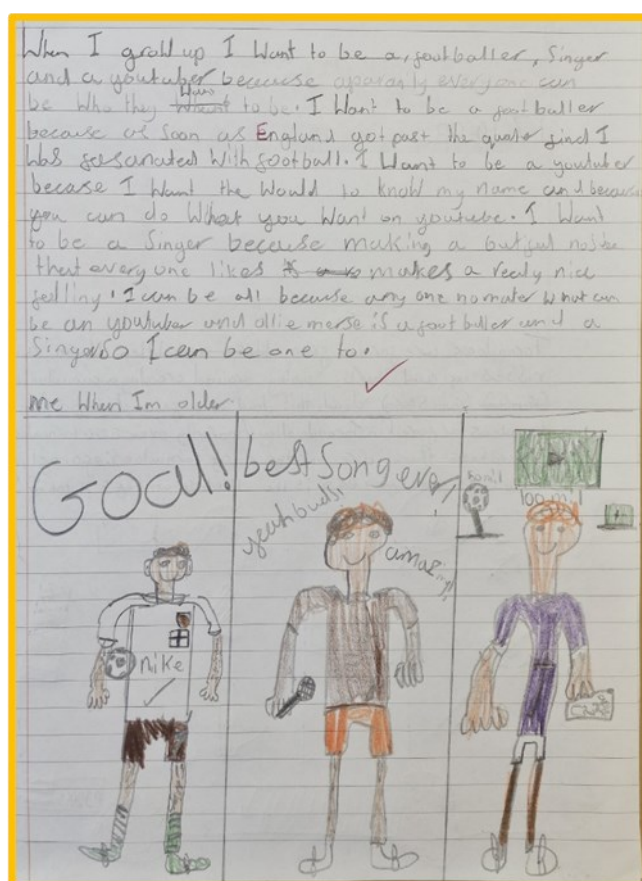 When I grow up I Want to be a, footballer, Singer
and a youtuber because aparantly everyone can
be Who they Want to be. I Want to be a footballer
because as Soon as England got past the quater final I
Was fasanated With football. I Want to be a youtuber
becase I Want the Would to know my name and because
you can do What you Want on youtube. I Want
to be a Singer because making a butiful noise
that every one likes makes a realy nice
felling. I can be all because any one no mater What can
be an youtuber and ollie merse is a footballer and a
Singer So I can be one to.
me When Im older
Goal!
nike
best Song ever!
yeah
amazing!
100 mil